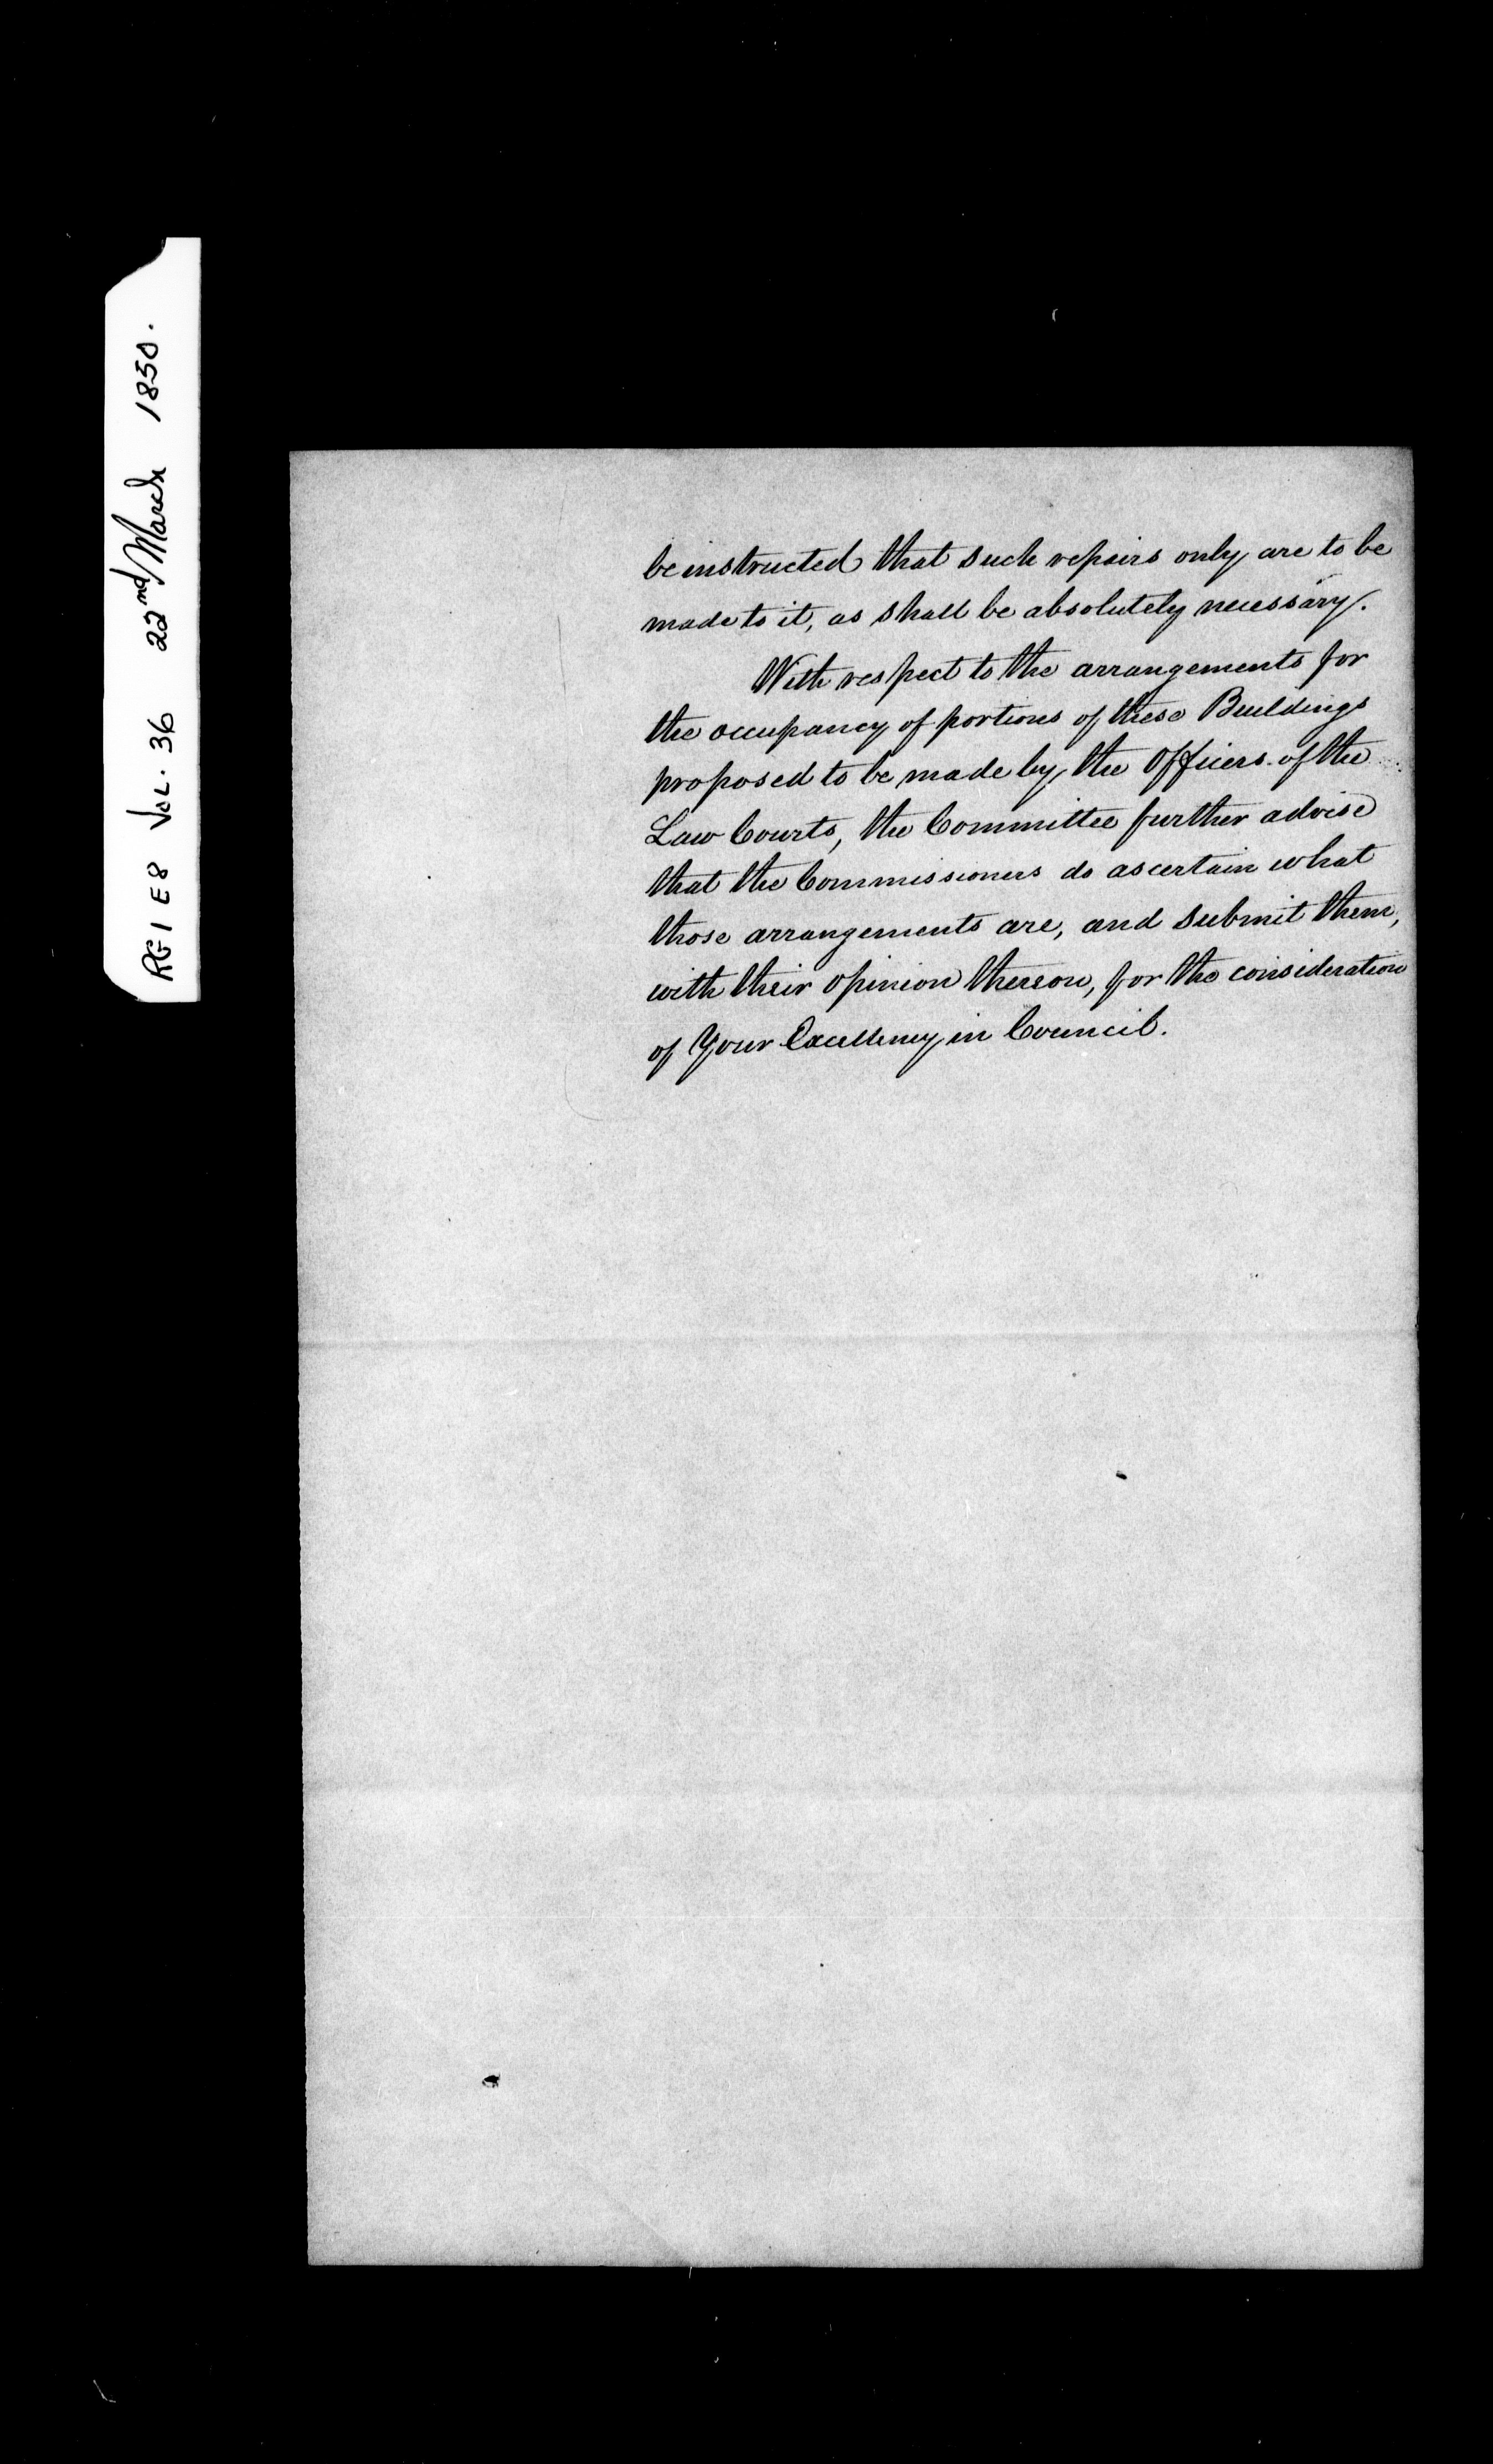 RG1 E8 VOL. 36 22nd March 1850.
be instructed that such repairs only are to be
made to it, as shall be absolutely necessary.
With respect to the arrangements for
the occupancy of portions of these Buildings
proposed to be made by the Officers of the
Law Courts, the Committee further advise
that the Commissioners do ascertain what
those arrangements are, and submit them,
with their opinion thereon, for the consideration
of Your Excellency in Council.